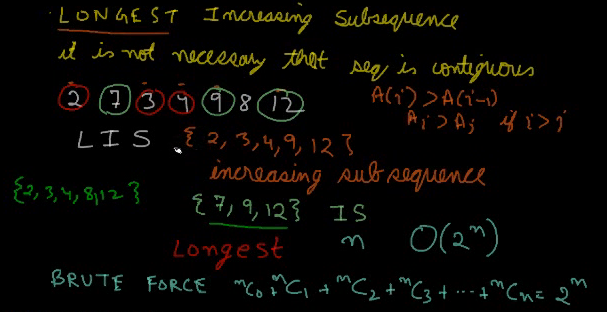 LONGEST Increasing Subsequence
it is not necessary that seq is contiguous
2 7 3 4 9 8 12
A(i) > A(i-1)
Ai > Aj if i > j
LIS {2, 3, 4, 9, 12}
increasing subsequence
{2, 3, 4, 8, 12}
{7, 9, 12} IS
Longest n O(2ⁿ)
BRUTE FORCE ⁿC₀ + ⁿC₁ + ⁿC₂ + ⁿC₃ + ... + ⁿCₙ = 2ⁿ